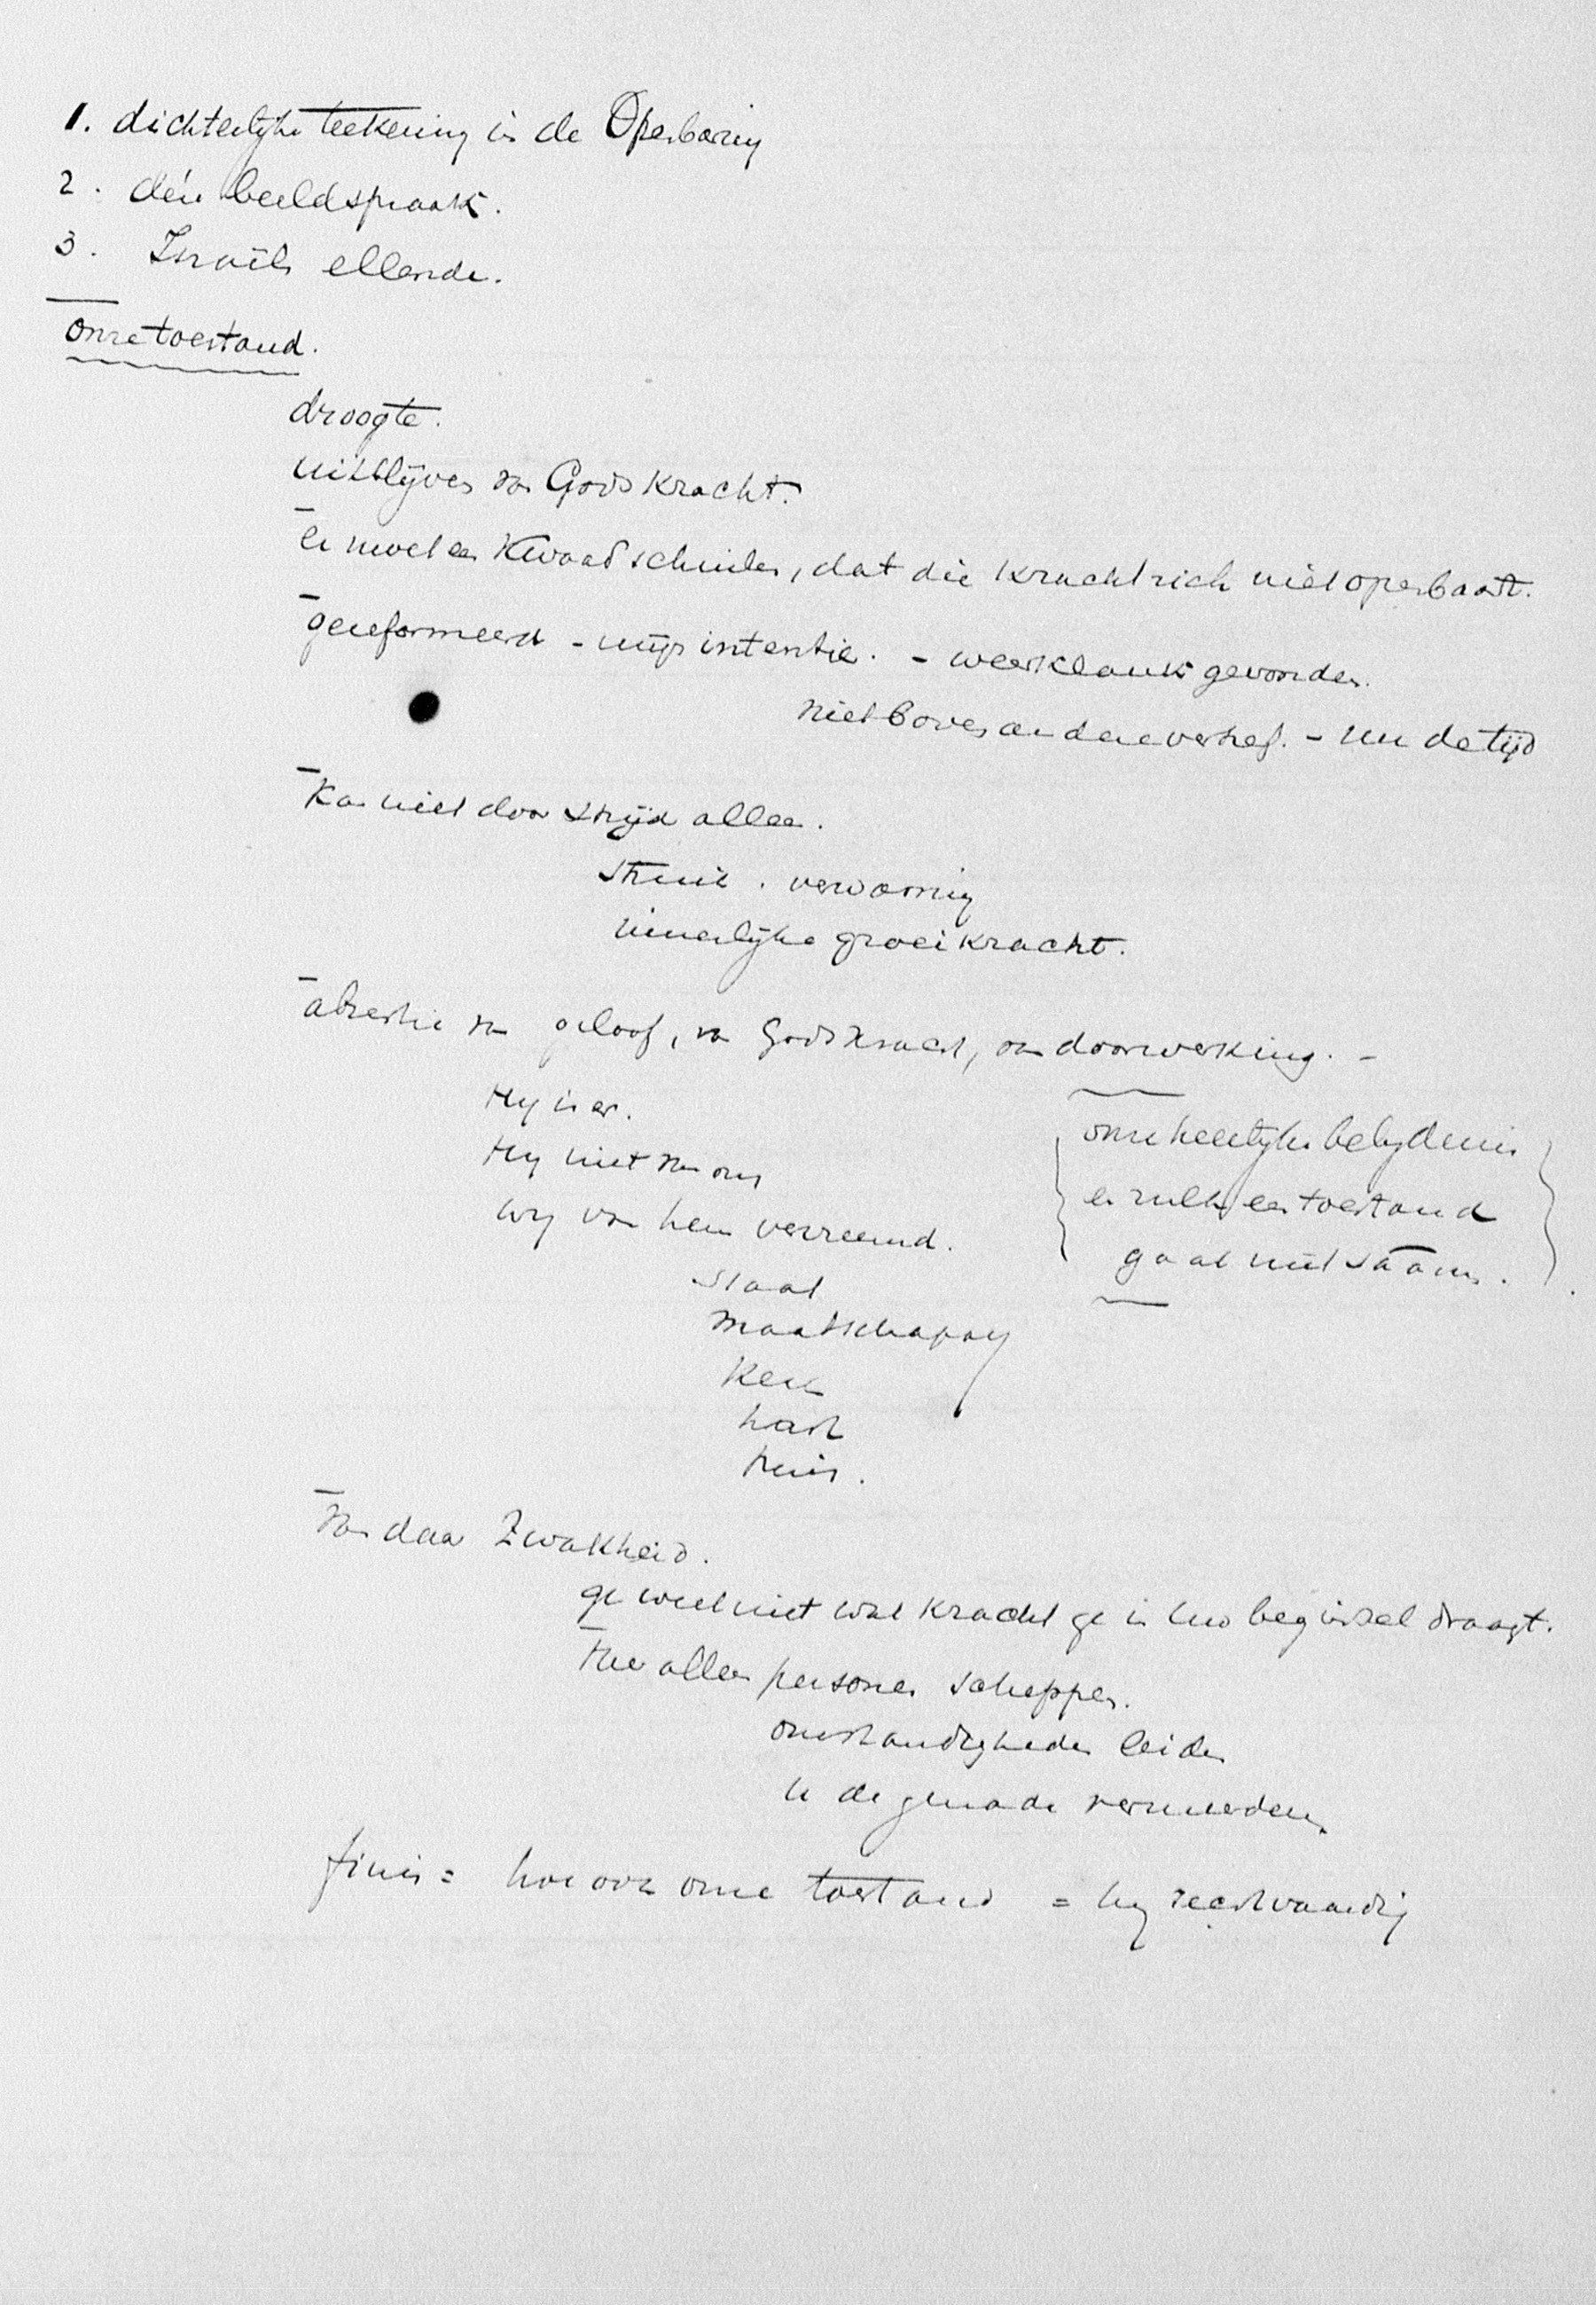 1. dichterlijke teekening in de Openbaring
2. dén beeldspraak.
3. Israëls ellende.
onze toestand.
droogte.
uitblijven van Gods kracht.
er moet een kwaad schuilen, dat die kracht zich niet openbaart.
gereformeerd - mijn intentie. - weerklank gevonden.
niet boven anderen verhef. - nu de tijd
Kan niet door strijd alleen.
verwarring
innerlijke groeikracht.
absentie van geloof, van Gods kracht, van doorwerking. -
Hy is er.
Hy niet van ons
wy van hem vervreemd.
onze heerlijke belydenis
en zulk een toestand
gaat niet saam.
Staat
Maatschappy
Kerk
hart
huis.
Van daar Zwakheid.
ge weet niet wat kracht ge in uw beginsel draagt.
alleen personen scheppen.
omstandigheden leiden
de genade vermeerderen
finis = hoe ook onze toestand = hy rechtvaardig